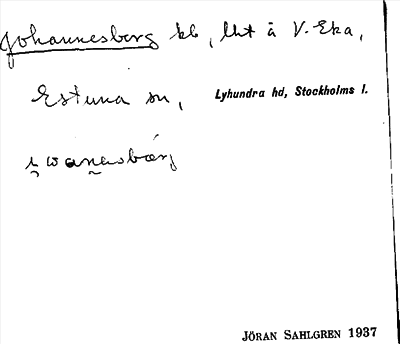 Johannesberg kb, lht å V. Eka,
Estuna sn, Lyhundra hd, Stockholms l.
JÖRAN SAHLGREN 1937